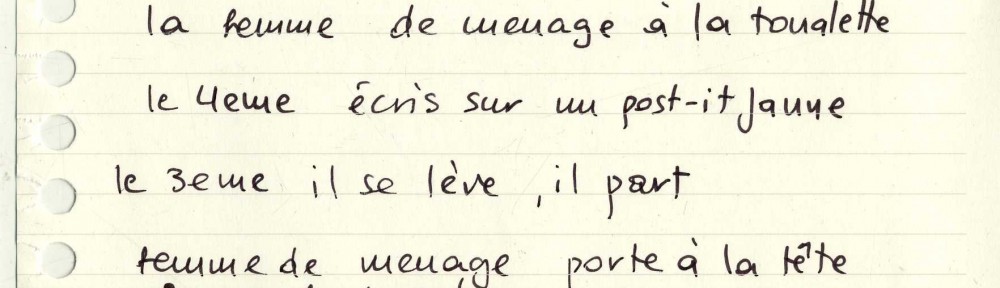 la femme de menage à la toualette
le 4eme écris sur un post-it Jaune
le 3eme il se lève, il part
femme de menage porte à la tête